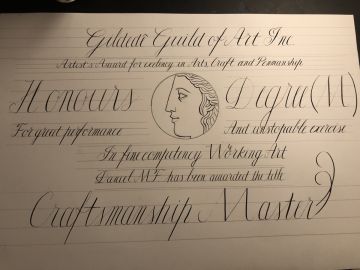 Gildedé Guild of Art Inc.
Artist's Award for exelincy in Arts, Craft and Penmanship
Honours Degree (M)
For great performance And unstopable exercise
In fine competency Working Art
Daniel MF has been awarded the title
Craftsmanship Master